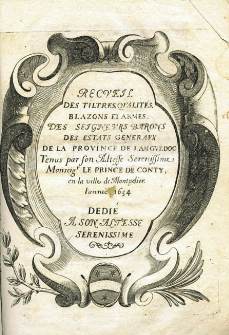 RECVEIL
DES TILTRES, QVALITÉS,
BLAZONS ET ARMES,
DES SEIGNEVRS BARONS
DES ESTATS GENERAVX
DE LA PROVINCE DE LANGVEDOC
Tenus par son Altesse Serenissime
Monseigr LE PRINCE DE CONTY,
en la ville de Montpelier
l'année 1654
DEDIÉ
A SON ALTESSE
SERENISSIME